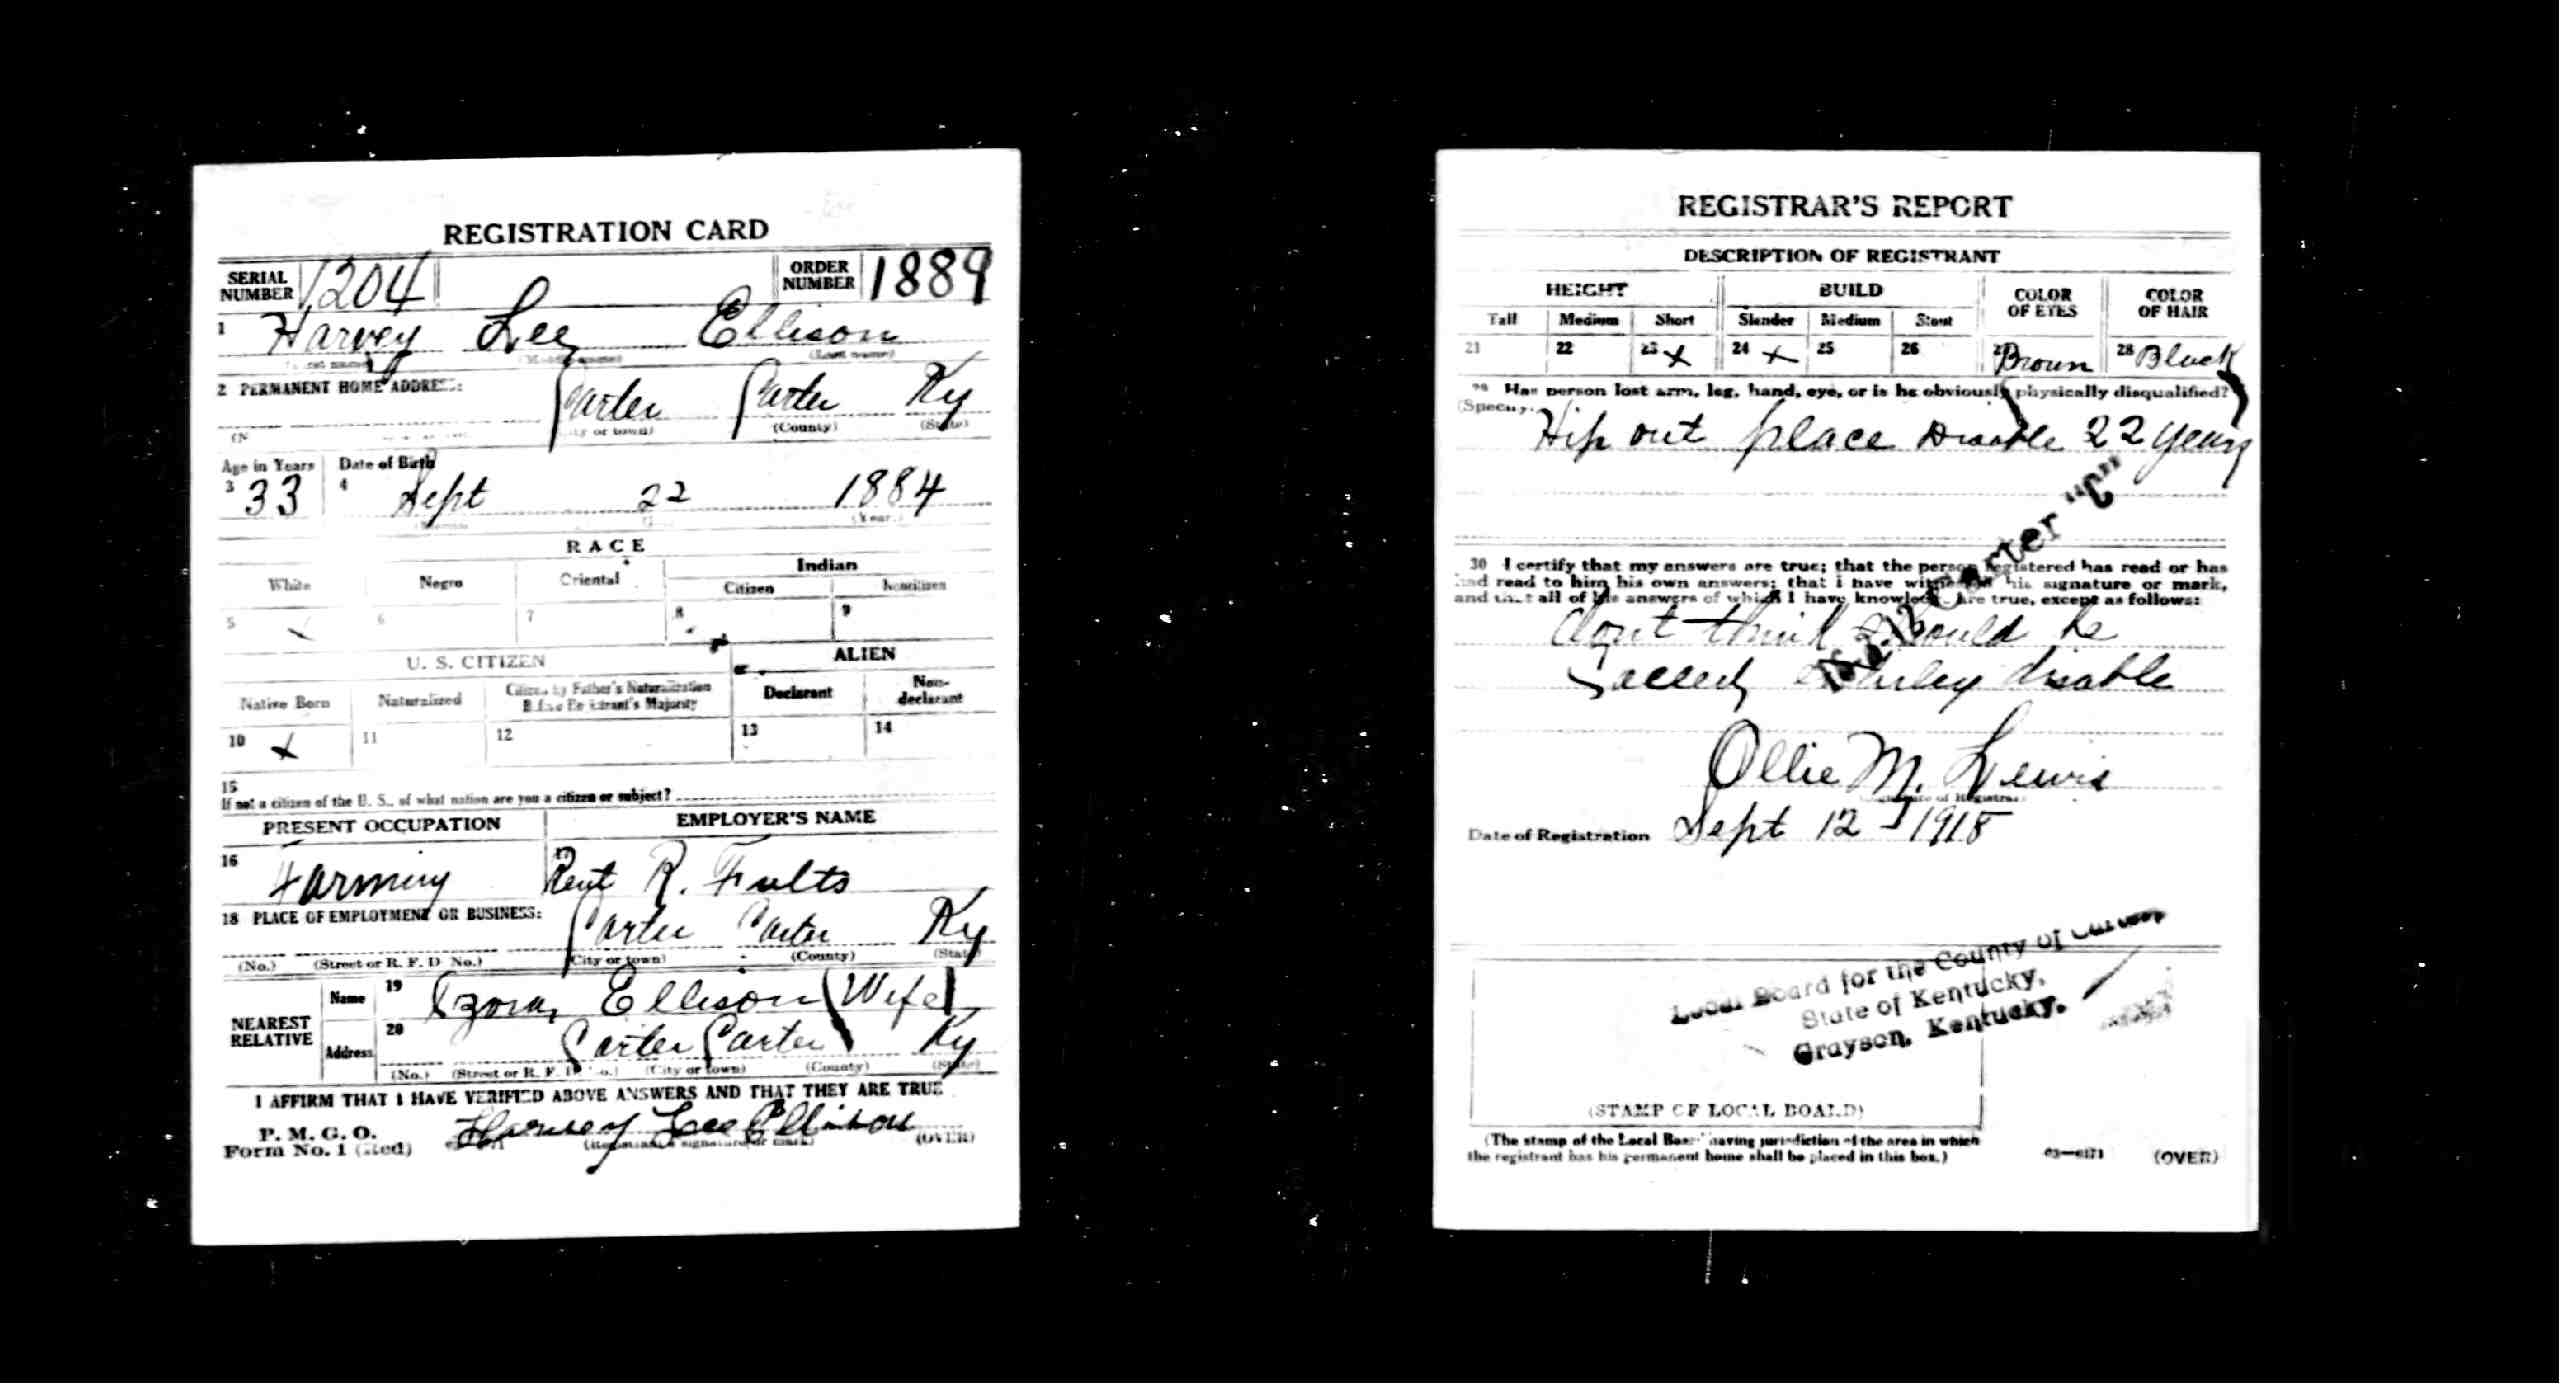 REGISTRATION CARD
SERIAL NUMBER 1204 ORDER NUMBER 1889
1 Harvey Lee Ellison
(Middle name) (Last name)
2 PERMANENT HOME ADDRESS:
Carter Carter Ky
(City or town) (County) (State)
Age in Years Date of Birth
3 33 4 Sept 22 1884
(Year.)
RACE
White Negro Oriental Indian
Citizen Noncitizen
5 6 7 8 9
U. S. CITIZEN ALIEN
Native Born Naturalized Citizen by Father's Naturalization Before Registrant's Majority Declarant Non-declarant
10 x 11 12 13 14
15
If not a citizen of the U. S., of what nation are you a citizen or subject?
PRESENT OCCUPATION EMPLOYER'S NAME
16 Farming 17 Rent R. Fults
18 PLACE OF EMPLOYMENT OR BUSINESS:
Carter Carter Ky
(No.) (Street or R. F. D. No.) (City or town) (County) (State)
NEAREST RELATIVE
Name 19 Ellison (Wife)
Address 20 Carter Carter Ky
(No.) (Street or R. F. D. No.) (City or town) (County) (State)
I AFFIRM THAT I HAVE VERIFIED ABOVE ANSWERS AND THAT THEY ARE TRUE
P. M. G. O.
Form No. 1 (Red) Harvey Lee Ellison
(Registrant's signature or mark) (OVER)
REGISTRAR'S REPORT
DESCRIPTION OF REGISTRANT
HEIGHT BUILD COLOR OF EYES COLOR OF HAIR
Tall Medium Short Slender Medium Stout
21 22 23 x 24 x 25 26 27 Brown 28 Black
29 Has person lost arm, leg, hand, eye, or is he obviously physically disqualified?
(Specify.)
Hip out place Disable 22 years
30 I certify that my answers are true; that the person registered has read or has
had read to him his own answers; that I have witnessed his signature or mark,
and that all of his answers of which I have knowledge are true, except as follows:
Carter "C"
dont think should be
disable
Ollie M. Lewis
(Signature of Registrar)
Date of Registration Sept 12 - 1918
Local Board for the County of Carter,
State of Kentucky,
Grayson, Kentucky.
(STAMP OF LOCAL BOARD)
(The stamp of the Local Board having jurisdiction of the area in which
the registrant has his permanent home shall be placed in this box.)
03—6171 (OVER)